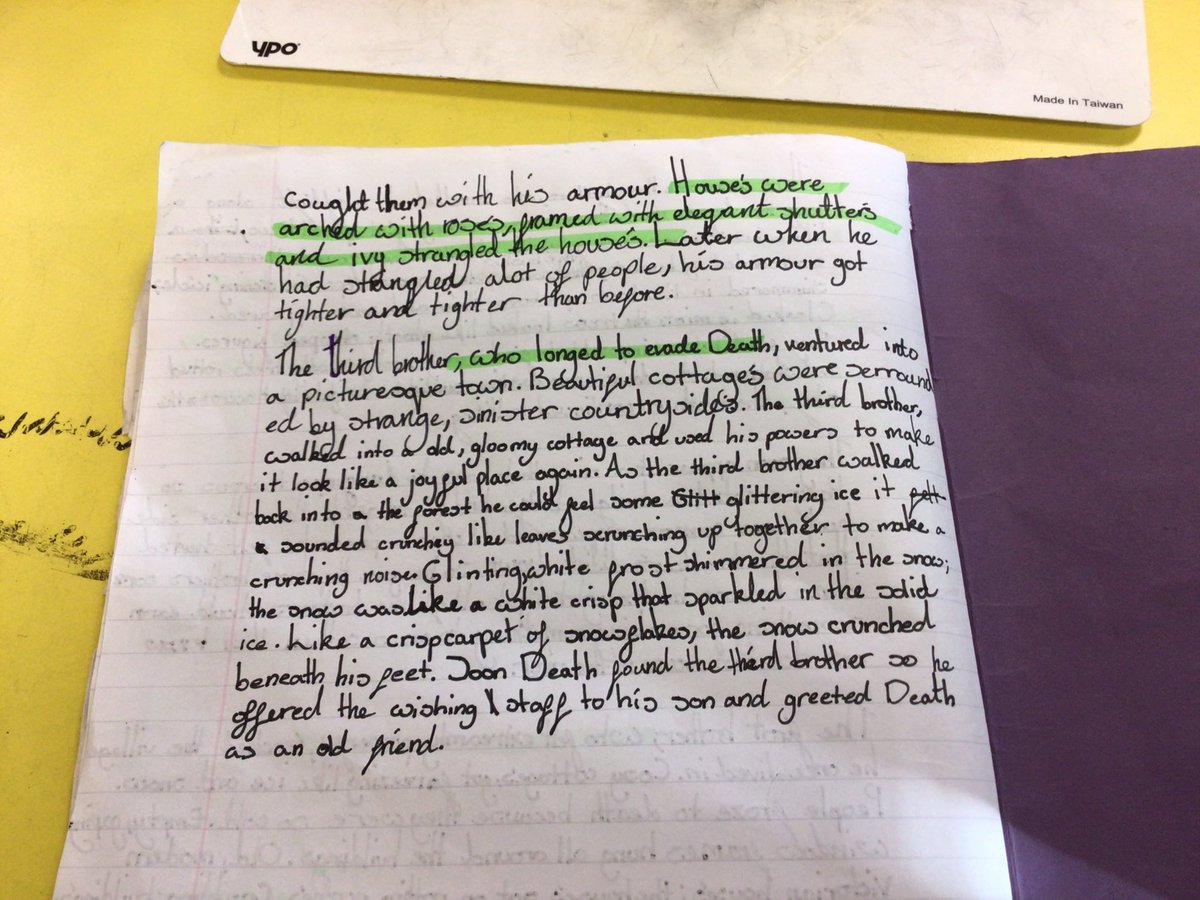 ypo
Made In Taiwan
cought them with his armour. House's were
arched with roses, framed with elegant shutters
and ivy strangled the house's. Later when he
had strangled alot of people, his armour got
tighter and tighter than before.
The third brother, who longed to evade Death, ventured into
a picturesque town. Beautiful cottage's were serround
ed by strange, sinister countryside's. The third brother,
walked into a old, gloomy cottage and used his powers to make
it look like a joyful place again. As the third brother walked
back into the forest he could feel some Glitt glittering ice it felt
sounded crunchey like leaves scrunching up together to make a
crunching noise. Glinting, white frost shimmered in the snow;
the snow was like a white crisp that sparkled in the solid
ice. Like a crisp carpet of snowflakes, the snow crunched
beneath his feet. Soon Death found the third brother so he
offered the wishing staff to his son and greeted Death
as an old friend.